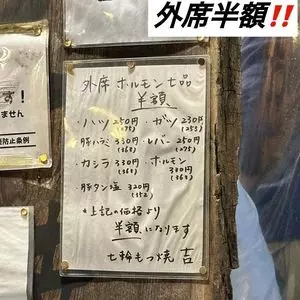 外席半額‼️
す!
ません
防止条例
外席 ホルモン七品
半額
・ハツ 250円 ・ガツ 230円
(275) (253)
・豚ハラミ 330円 ・レバー 250円
(363) (275)
・カシラ 330円 ・ホルモン
(363) 330円
・豚タン塩 320円 (363)
(352)
*上記の価格より
半額になります
七輪もつ焼 吉